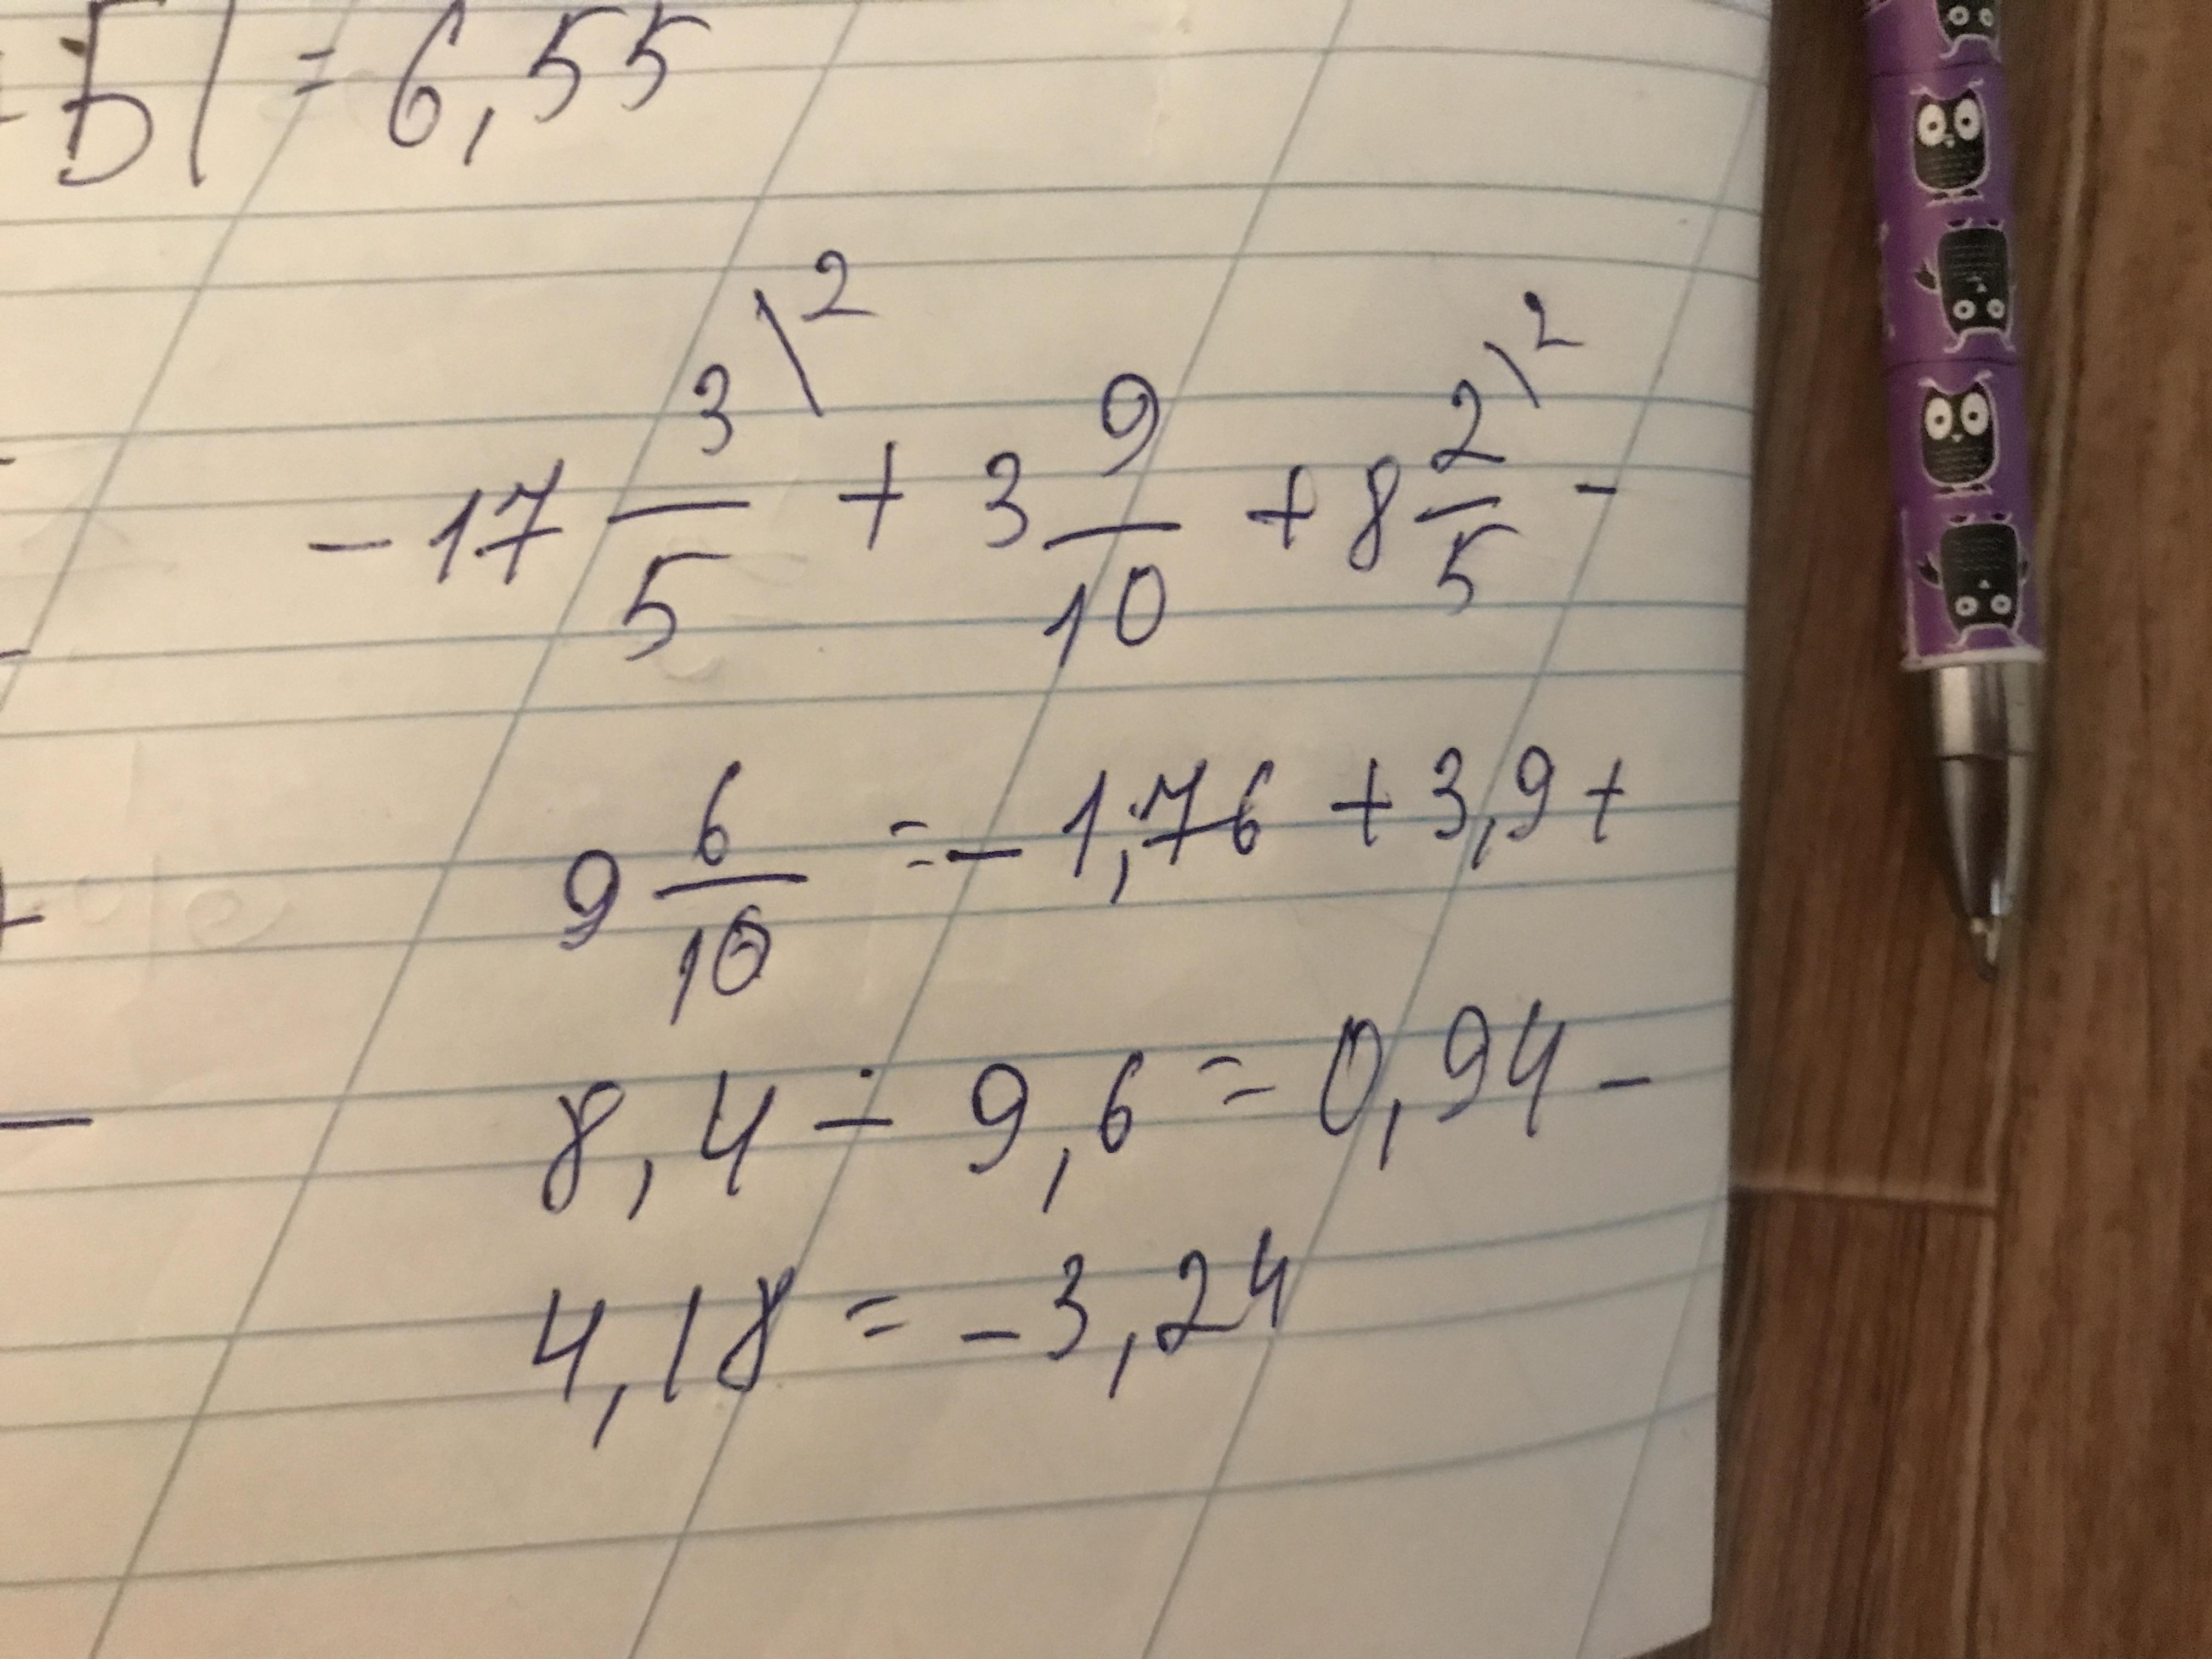 Б) = 6,55
-17 3\2/5 + 3 9/10 + 8 2\2/5 -
9 6/10 = - 1,76 + 3,9 +
8,4 - 9,6 = 0,94 -
4,18 = - 3,24